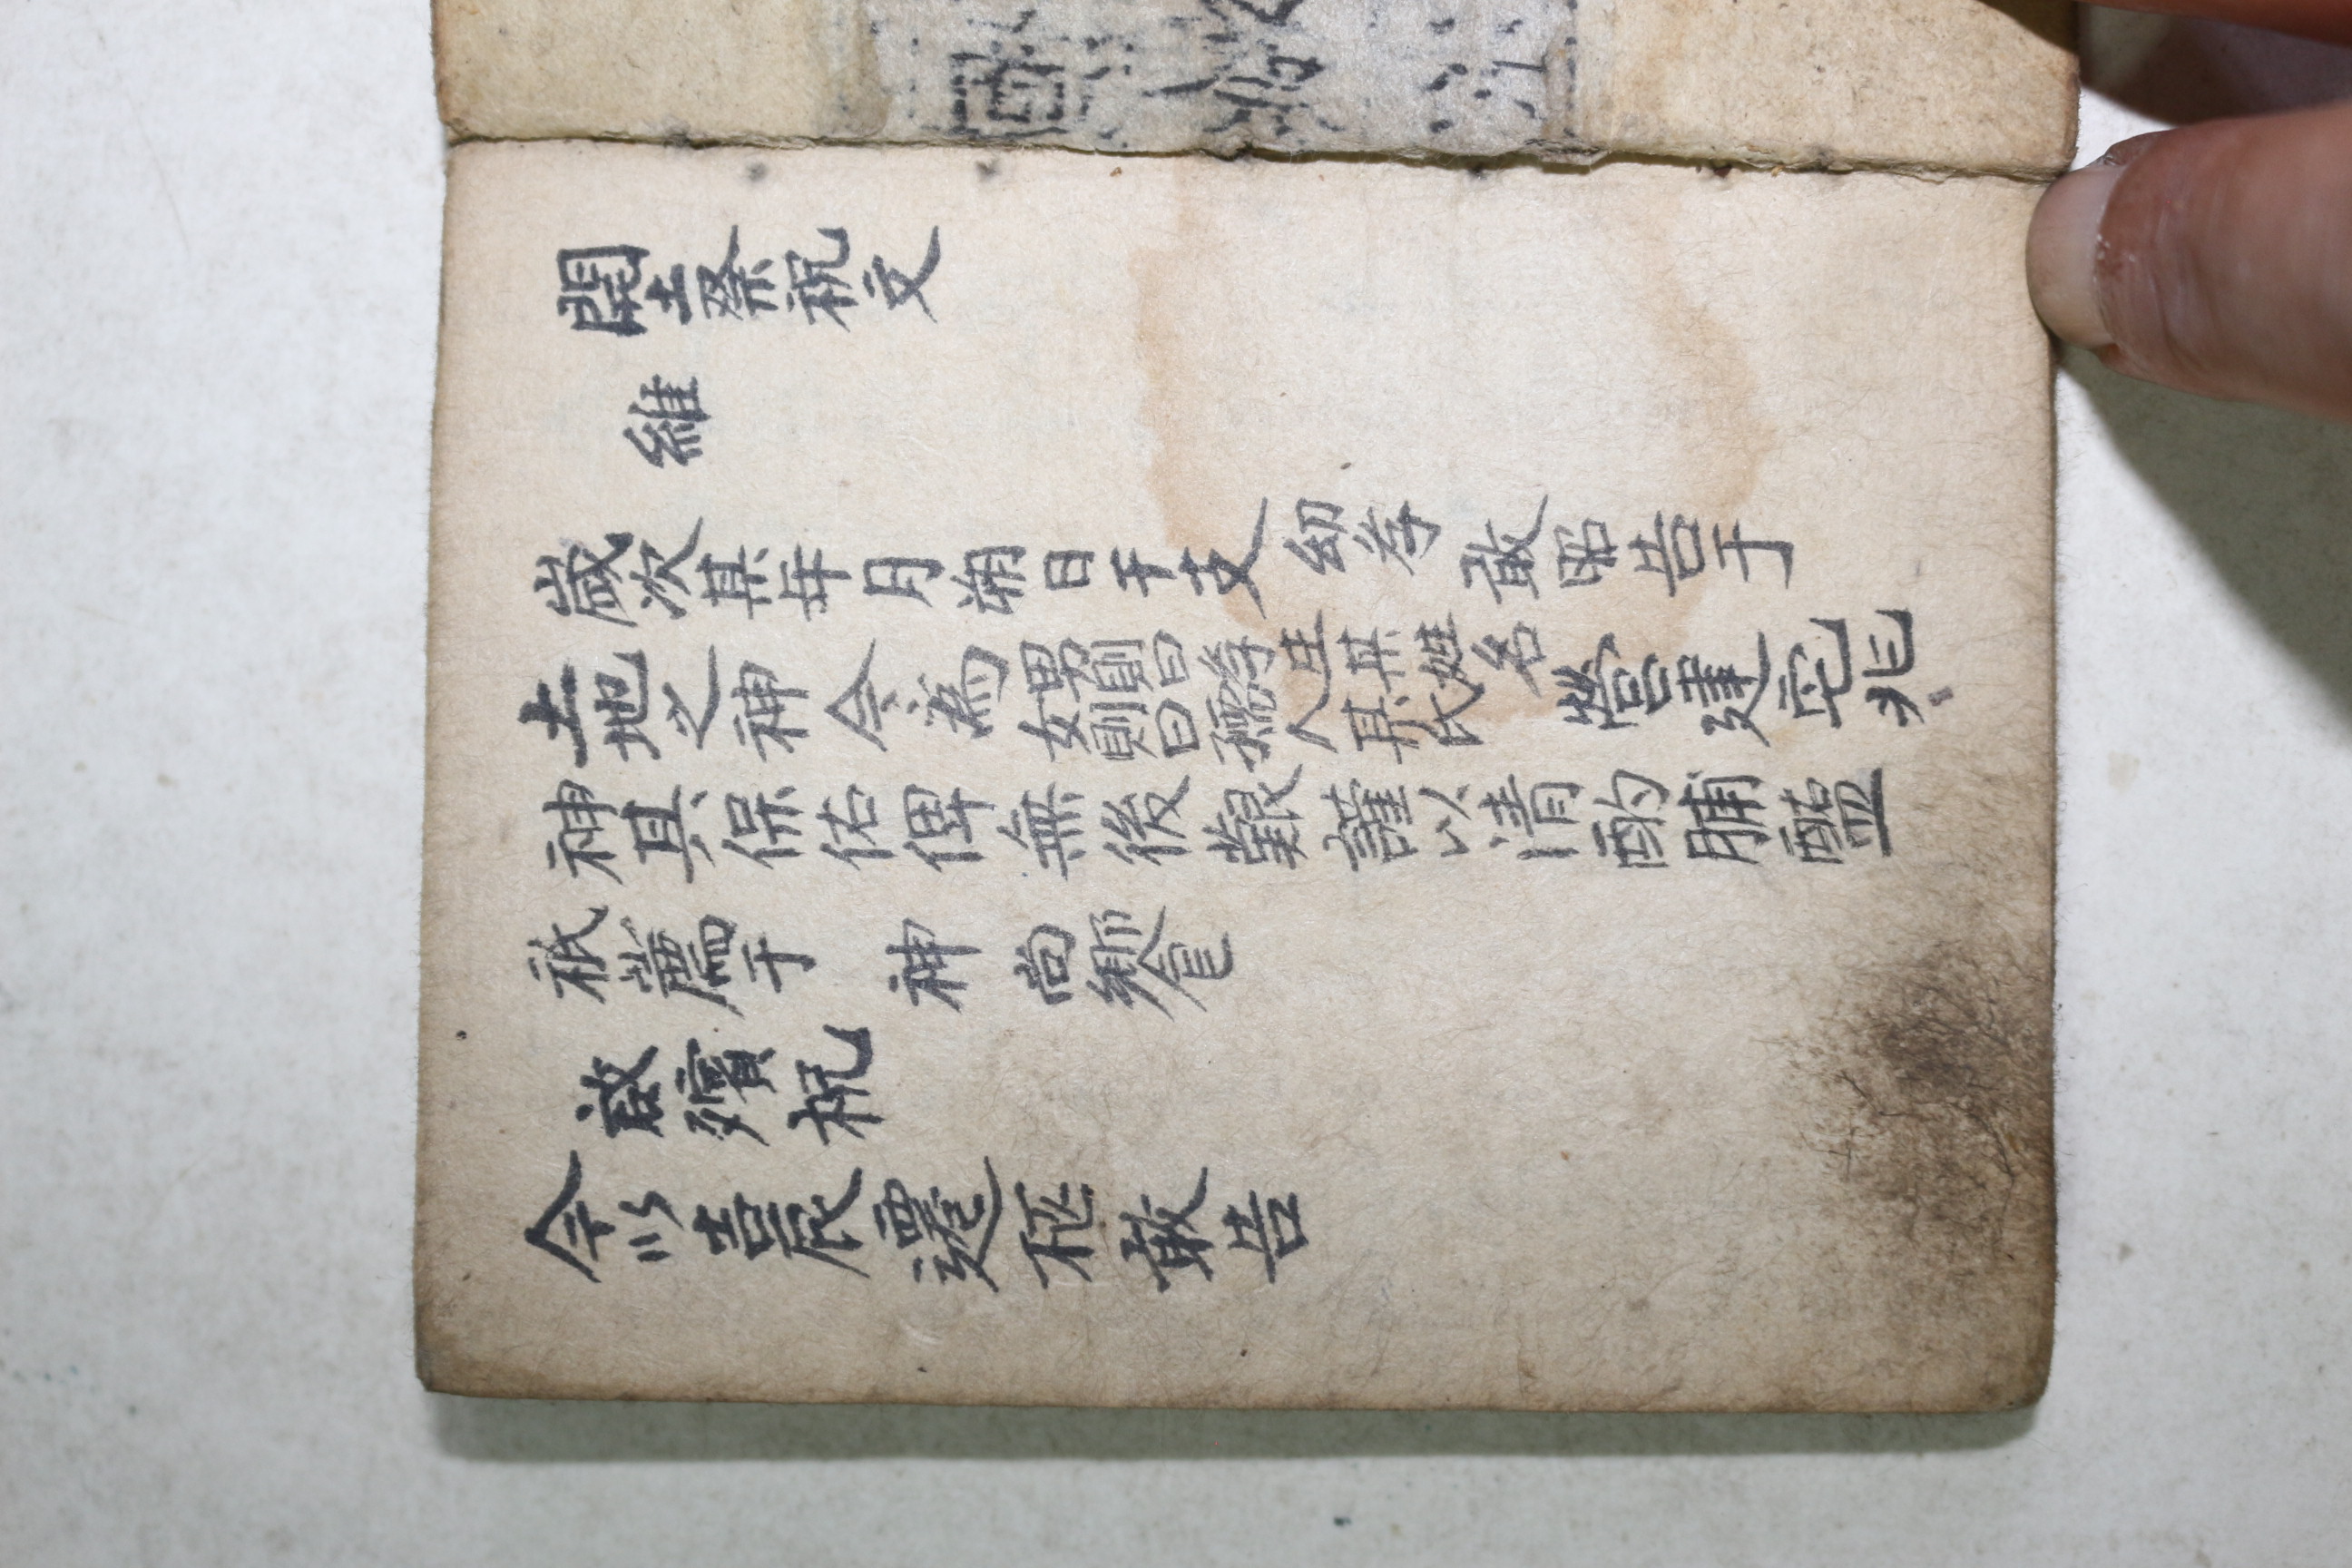 開土祭祝文
維
歲次某年月朔日干支幼学敢昭告于
土地之神今為男則曰学生某姓名女則曰孺人某氏營建宅兆
神其保佑俾無後艱謹以清酌脯醢
祇薦于 神 尚饗
啟殯祝
今以吉辰遷柩敢告